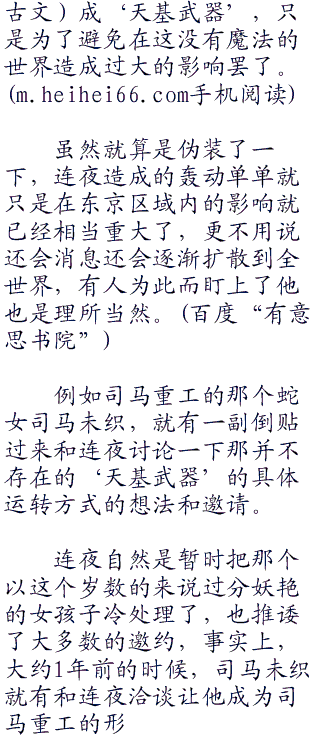 古文）成‘天基武器’，只
是为了避免在这没有魔法的
世界造成过大的影响罢了。
(m.heihei66.com手机阅读)
虽然就算是伪装了一
下，连夜造成的轰动单单就
只是在东京区域内的影响就
已经相当重大了，更不用说
还会消息还会逐渐扩散到全
世界，有人为此而盯上了他
也是理所当然。(百度“有意
思书院”)
例如司马重工的那个蛇
女司马未织，就有一副倒贴
过来和连夜讨论一下那并不
存在的‘天基武器’的具体
运转方式的想法和邀请。
连夜自然是暂时把那个
以这个岁数的来说过分妖艳
的女孩子冷处理了，也推诿
了大多数的邀约，事实上，
大约1年前的时候，司马未织
就有和连夜洽谈让他成为司
马重工的形